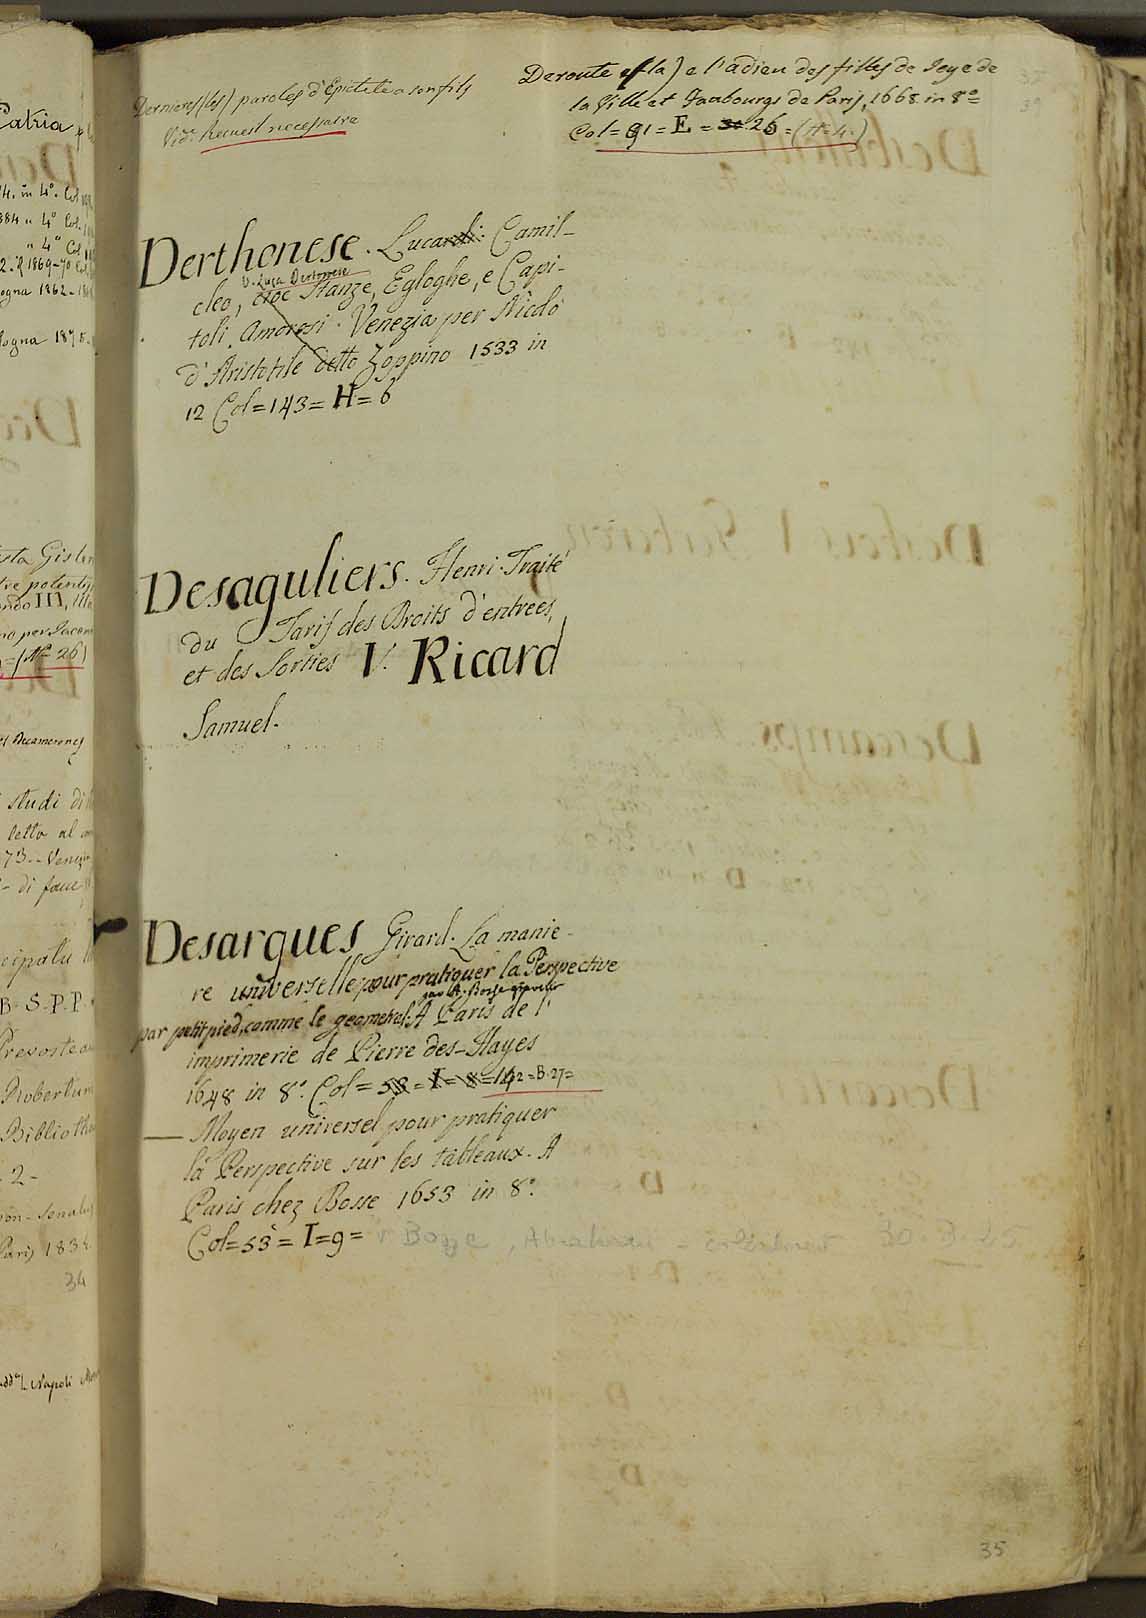 Dernieres (les) paroles d'Epictete a son fils
Vid. Recueil necessaire
Deroute (la) e l'adieu des filles de Joye de
la Ville et Faubourgs de Paris, 1668. in 8º=
Col= 91= E = 26 =(Nº 4.)
Derthonese. Luca: Camil-
V. Luca Dertonese
cleo, cioè Stanze, Egloghe, e Capi-
toli Amorosi. Venezia per Nicolò
d'Aristotile detto Zoppino 1533 in
12 Col=143= H= 6
Desaguliers. Henri. Traité
du Tarif des Droits d'entrees,
et des Sorties V. Ricard
Samuel.
Desargues Girard. La manie-
re universelle pour pratiquer la Perspective
par A. Bosse graveur
par petit pied, comme le geometral. A Paris de l'
imprimerie de Pierre des-Hayes
1648 in 8º. Col= 53 = I= 8 =142=B.27=
— Moyen universel pour pratiquer
la Perspective sur les tableaux. A
Paris chez Bosse 1653 in 8º.
Col=53= I=9= v. Bosse, Abraham -
35
Catria
/4. in 4º. Col
384 " 4º Col.
" 4º Col
1869-70
ogna 1862-
logna 1875.
sta Gisb
potenti
ondo III,
no per Iacom
=(Nº 26)
Decamerone
studi di
letto al
73-- Venezi
- di fau
cipatu
B-S-P.P.
Robertum
Biblioth
- 2 -
Pari) 183
34
Napoli